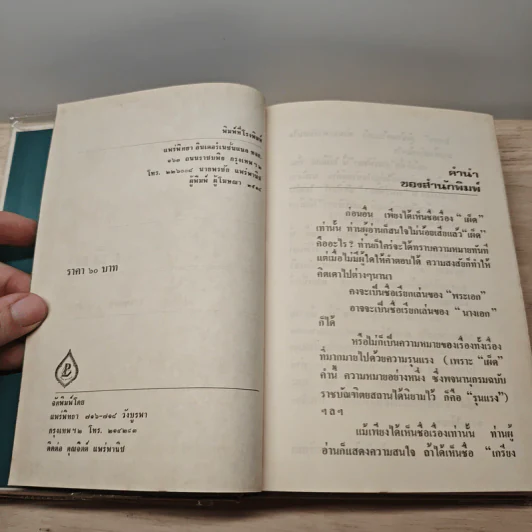 พิมพ์ที่โรงพิมพ์
แพร่พิทยา อินเตอร์เนชั่นแนล
๑๖๓ ถนนราชบพิธ กรุงเทพฯ
โทร. ๒๒๖๐๐๘ นายพรชัย
ผู้พิมพ์ ผู้โฆษณา
ราคา ๖๐ บาท
จัดพิมพ์โดย
แพร่พิทยา ๗๑๖-๗๑๘ วังบูรพา
กรุงเทพฯ ๒ โทร.
ติดต่อ คุณจิตต์ แพร่พานิช
คำนำ
ของสำนักพิมพ์
ก่อนอื่น เพียงได้เห็นชื่อเรื่อง “เผ็ด”
เท่านั้น ท่านผู้อ่านก็สนใจไม่น้อยเสียแล้ว “เผ็ด”
คืออะไร ? ท่านก็ใคร่จะได้ทราบความหมายทันที
แต่เมื่อไม่มีผู้ใดให้คำตอบได้ ความสงสัยก็ทำให้
คิดเดาไปต่างๆนานา
คงจะเป็นชื่อเรียกเล่นของ “พระเอก”
อาจจะเป็นชื่อเรียกเล่นของ “นางเอก”
ก็ได้
หรือไม่ก็เป็นความหมายของเรื่องทั้งเรื่อง
ที่มากมายไปด้วยความรุนแรง (เพราะ “เผ็ด”
คำนี้ ความหมายอย่างหนึ่ง ซึ่งพจนานุกรมฉบับ
ราชบัณฑิตยสถานได้นิยามไว้ ก็คือ “รุนแรง”)
ฯลฯ
แม้เพียงได้เห็นชื่อเรื่องเท่านั้น ท่านผู้
อ่านก็แสดงความสนใจ ถ้าได้เห็นชื่อ “เกรียง